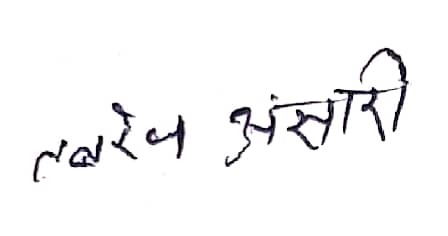 तबरेज अंसारी